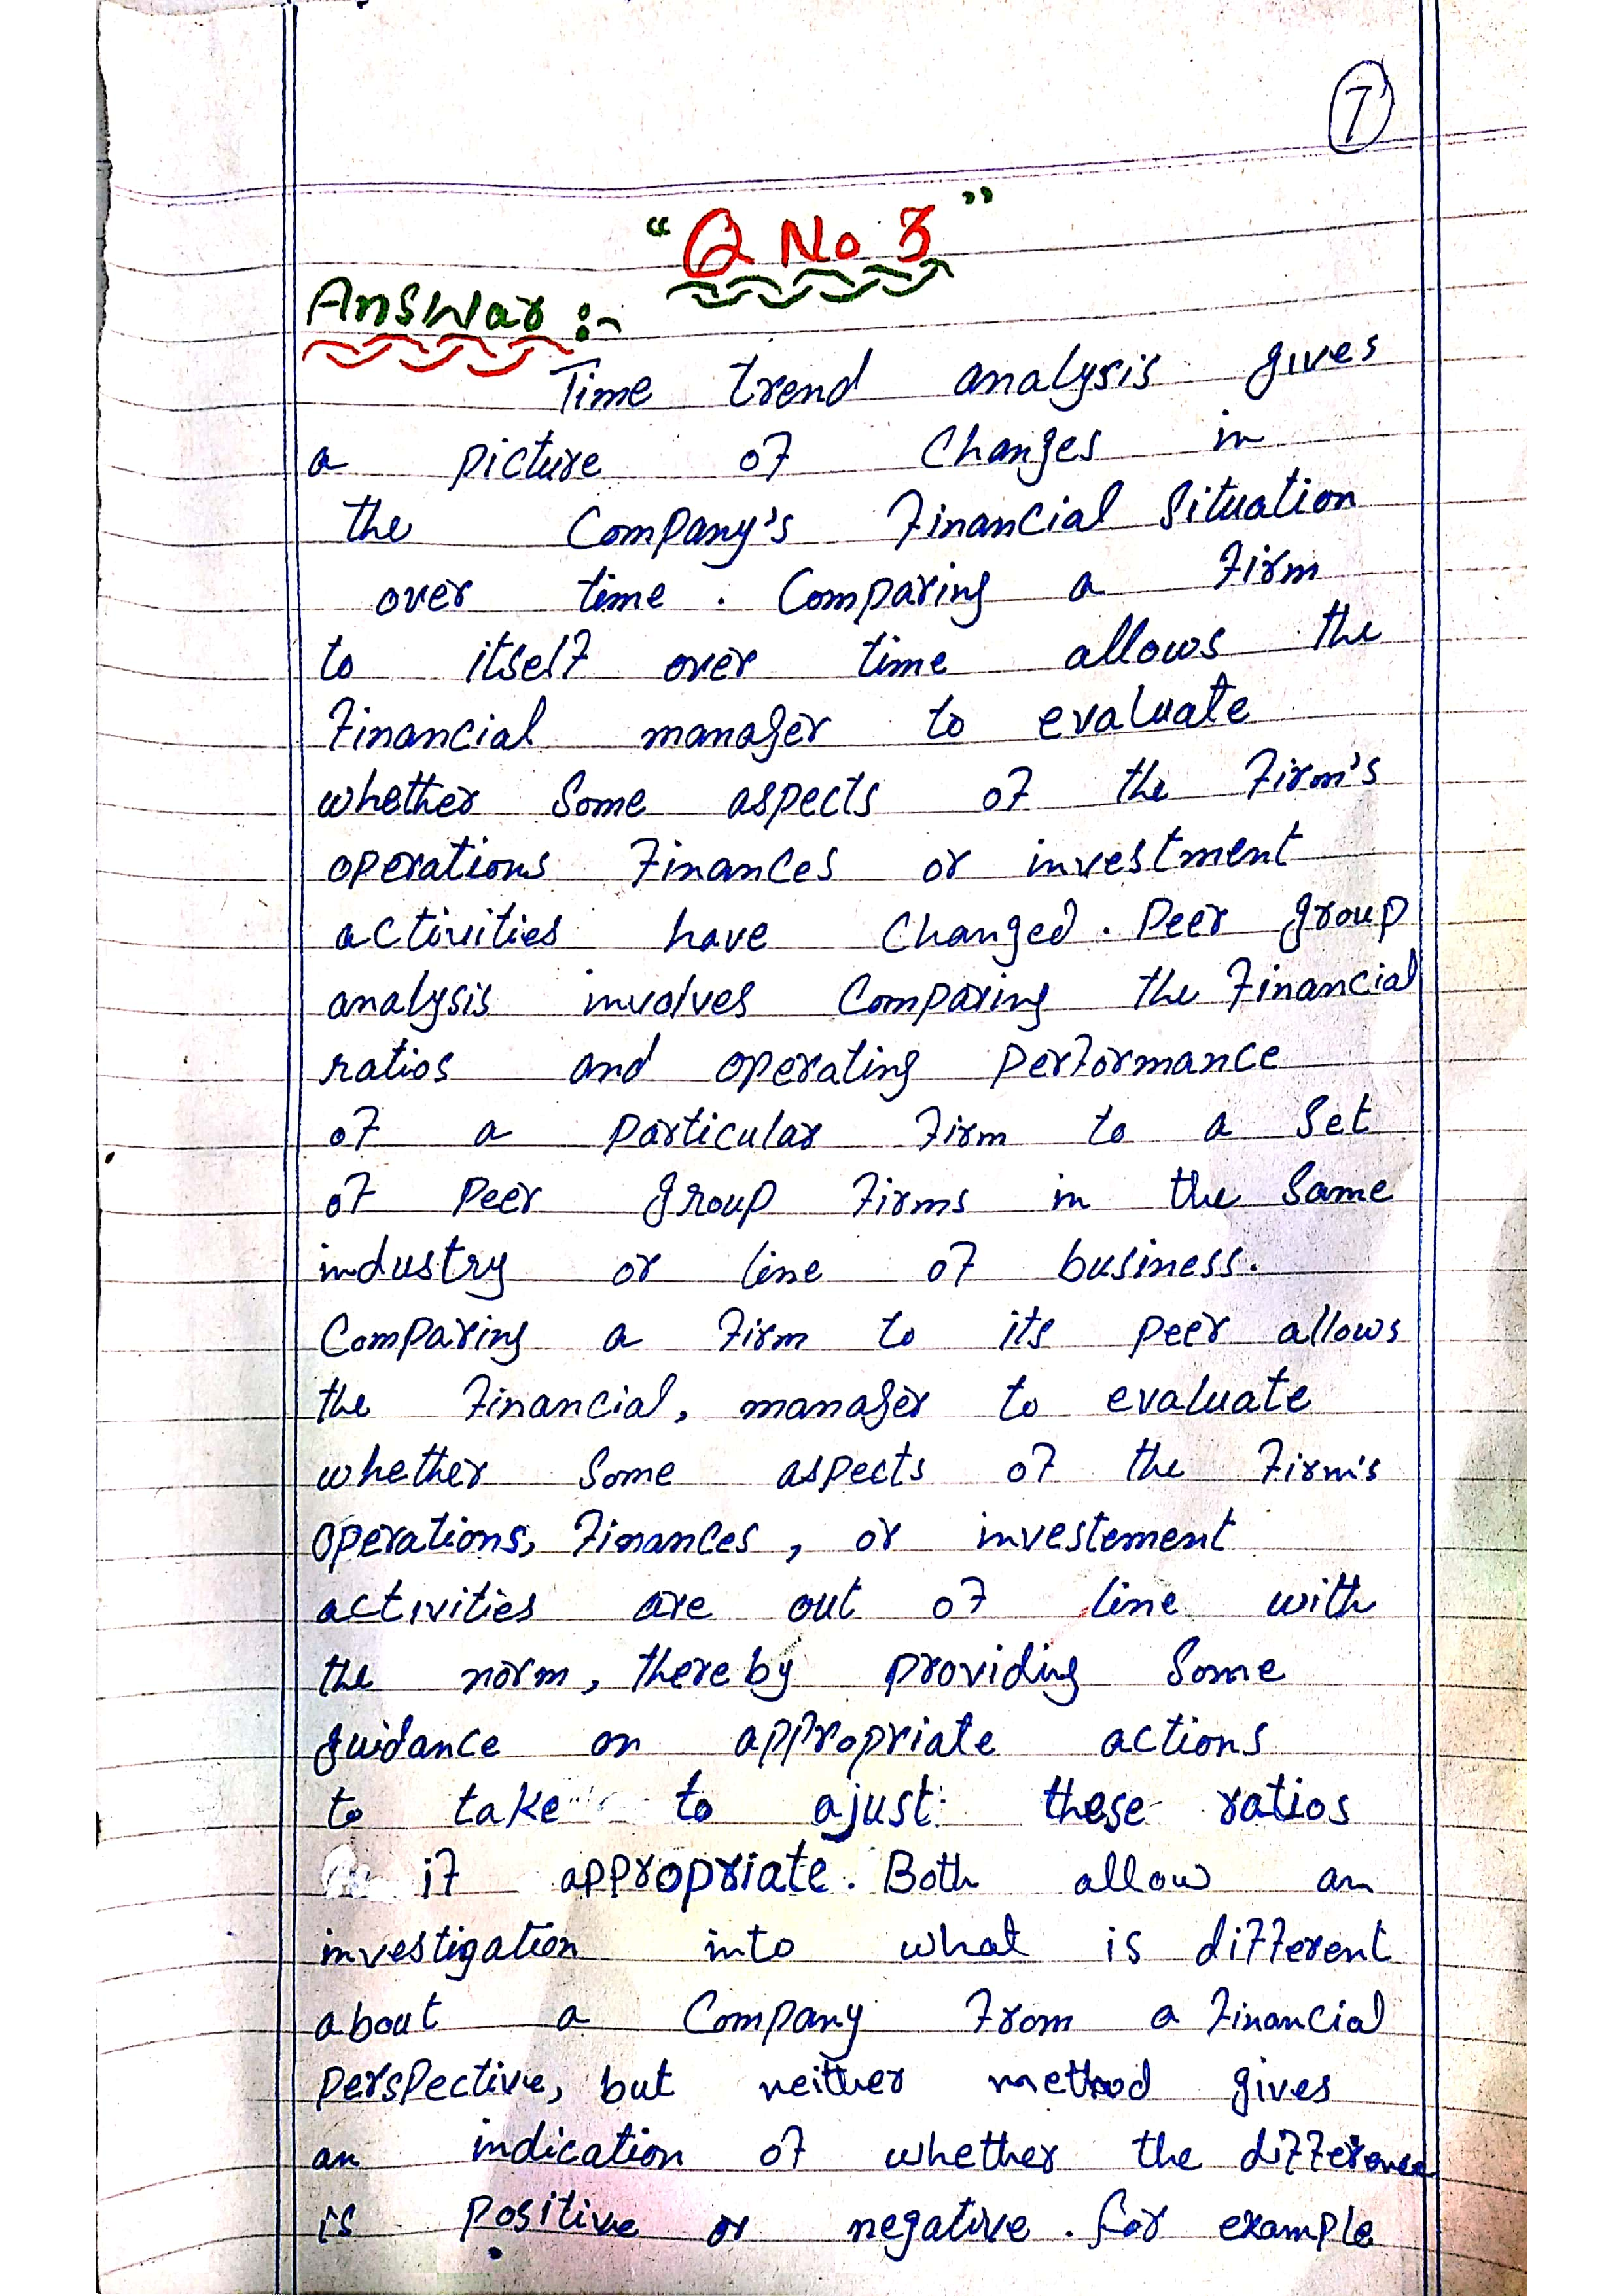 7
"Q No 3"
Answar :-
Time trend analysis gives
a picture of Changes in
the Company's Financial Situation
over time . Comparing a Firm
to itself over time allows the
Financial manager to evaluate
whether Some aspects of the Firm's
operations Finances or investment
activities have Changed . Peer group
analysis involves Comparing the Financial
ratios and operating Performance
of a Particular Firm to a Set
of Peer group Firms in the Same
industry or line of business.
Comparing a Firm to its peer allows
the Financial, manager to evaluate
whether Some aspects of the Firm's
operations, Finances, or investement
activities are out of line with
the norm, thereby providing Some
guidance on appropriate actions
to take to ajust these ratios
if appropriate. Both allow an
investigation into what is different
about a Company From a Financial
Perspective, but neither method gives
an indication of whether the difference
is Positive or negative . For example